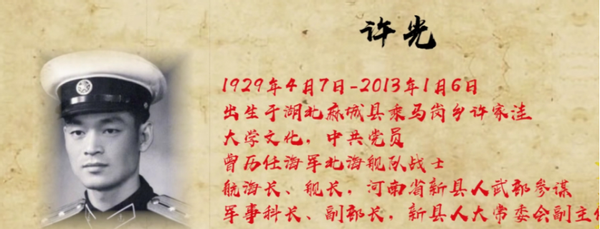 许光
1929年4月7日-2013年1月6日
出生于湖北麻城县乘马岗乡许家洼
大学文化，中共党员
曾历任海军北海舰队战士
航海长、舰长，河南省新县人武部参谋
军事科长、副部长，新县人大常委会副主